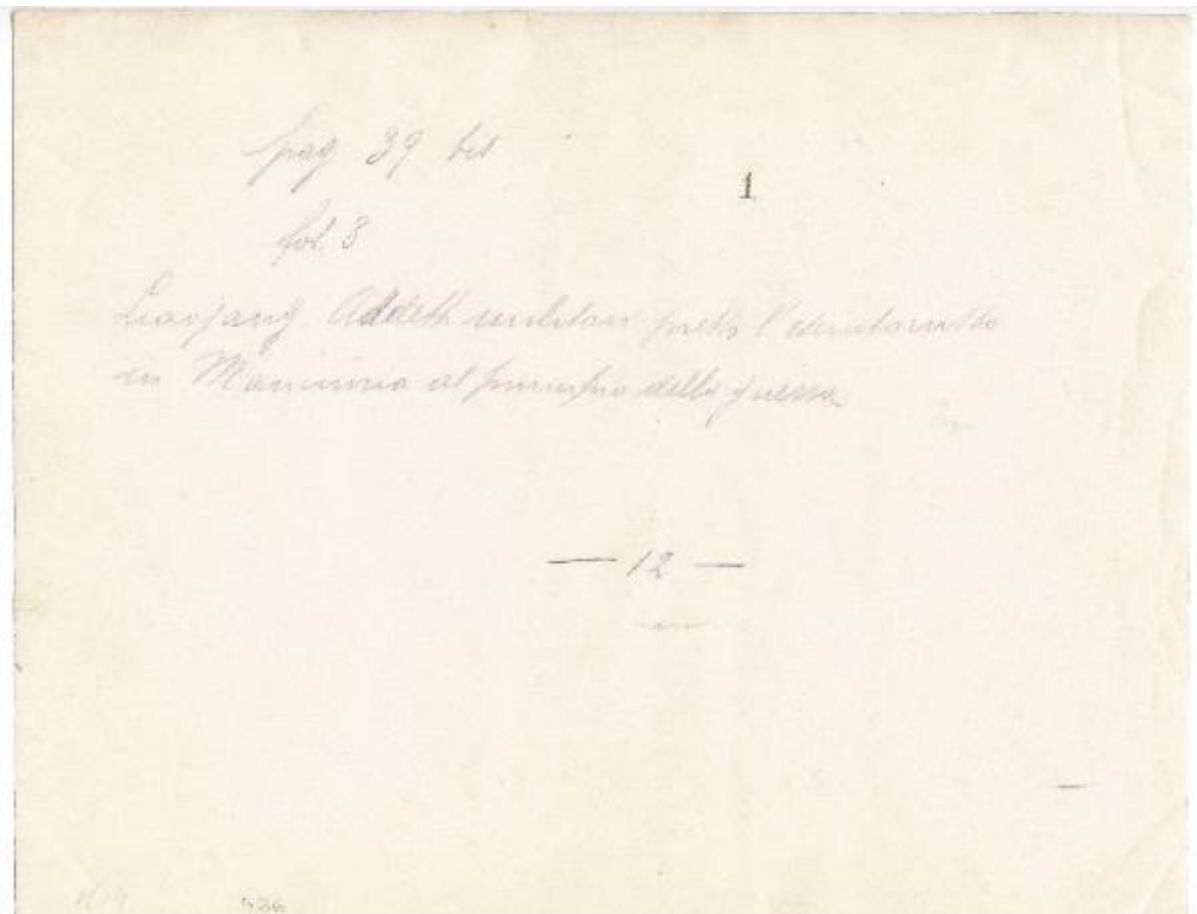 pag 39 bis
1
fot. 3
Liaojang Addetti militari presso l'esercito russo
in Manciuria al principio della guerra
— 12 —